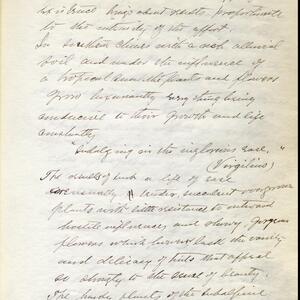 existence brings about results proportionate
to the intensity of the effort.
In southern climes with a rich alluvial
soil and under the influence of
a tropical sun the plants and flowers
grow luxuriantly everything being
conducive to their growth and life
constantly
"Indulging in the inglorious ease,"
(Virgilius)
The results of such a life of ease
are tender, succulent overgrown
plants with little resistance to outward
hostile influences and showy gorgeous
flowers which however lack the variety
and delicacy of hues that appeal
so strongly to the sense of beauty.
The hardy plants of the